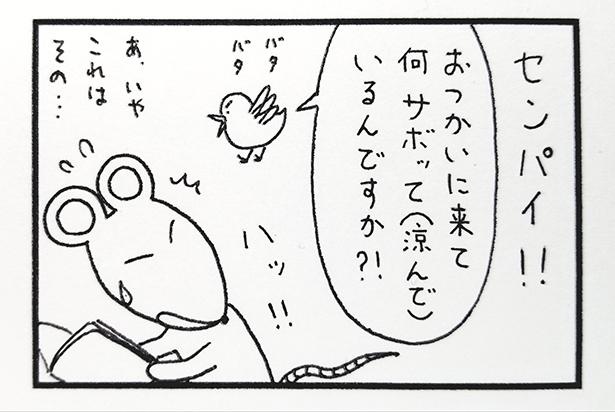 センパイ!!
おつかいに来て
何サボッて(涼んで)
いるんですか?!
バタ
バタ
ハッ!!
あ、いや
これは
その…